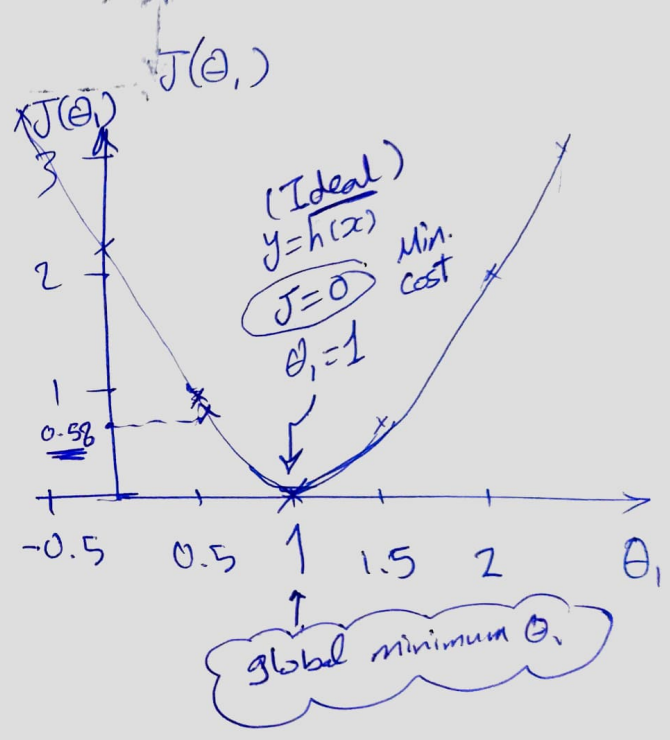 J(θ₁)
J(θ₁)
3
2
1
0.58
(Ideal)
y=h(x)
J=0
Min.
cost
θ₁=1
-0.5 0.5 1 1.5 2 θ₁
global minimum θ₁